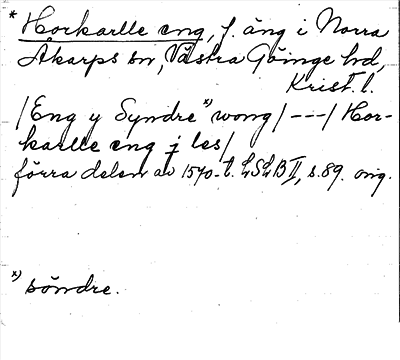 * Horkarlle eng, f. äng i Norra
Åkarps sn, Västra Göinge hd,
Krist. l.
/Eng y Syndre *) wong/ --- / Hor-
karlle eng j les/
förra delen av 1540-t. LSLB II, s. 89. orig.
*) söndre.